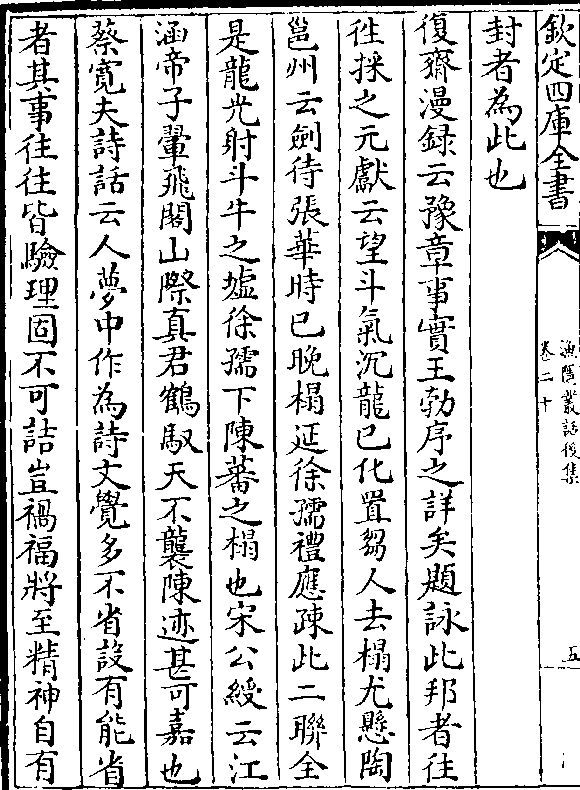 欽定四庫全書
漁隠叢話後集
卷二十
五
封者為此也
復齋漫録云豫章事實王勃序之詳矣題詠此邦者往
徃採之元獻云望斗氣沉龍已化置芻人去榻尤懸陶
邕州云劍待張華時已晚榻延徐孺禮應疎此二聯全
是龍光射斗牛之墟徐孺下陳蕃之榻也宋公綬云江
涵帝子翬飛閣山際真君鶴馭天不襲陳迹甚可嘉也
蔡寛夫詩話云人夢中作為詩文覺多不省設有能省
者其事往往皆驗理固不可詰豈禍福將至精神自有